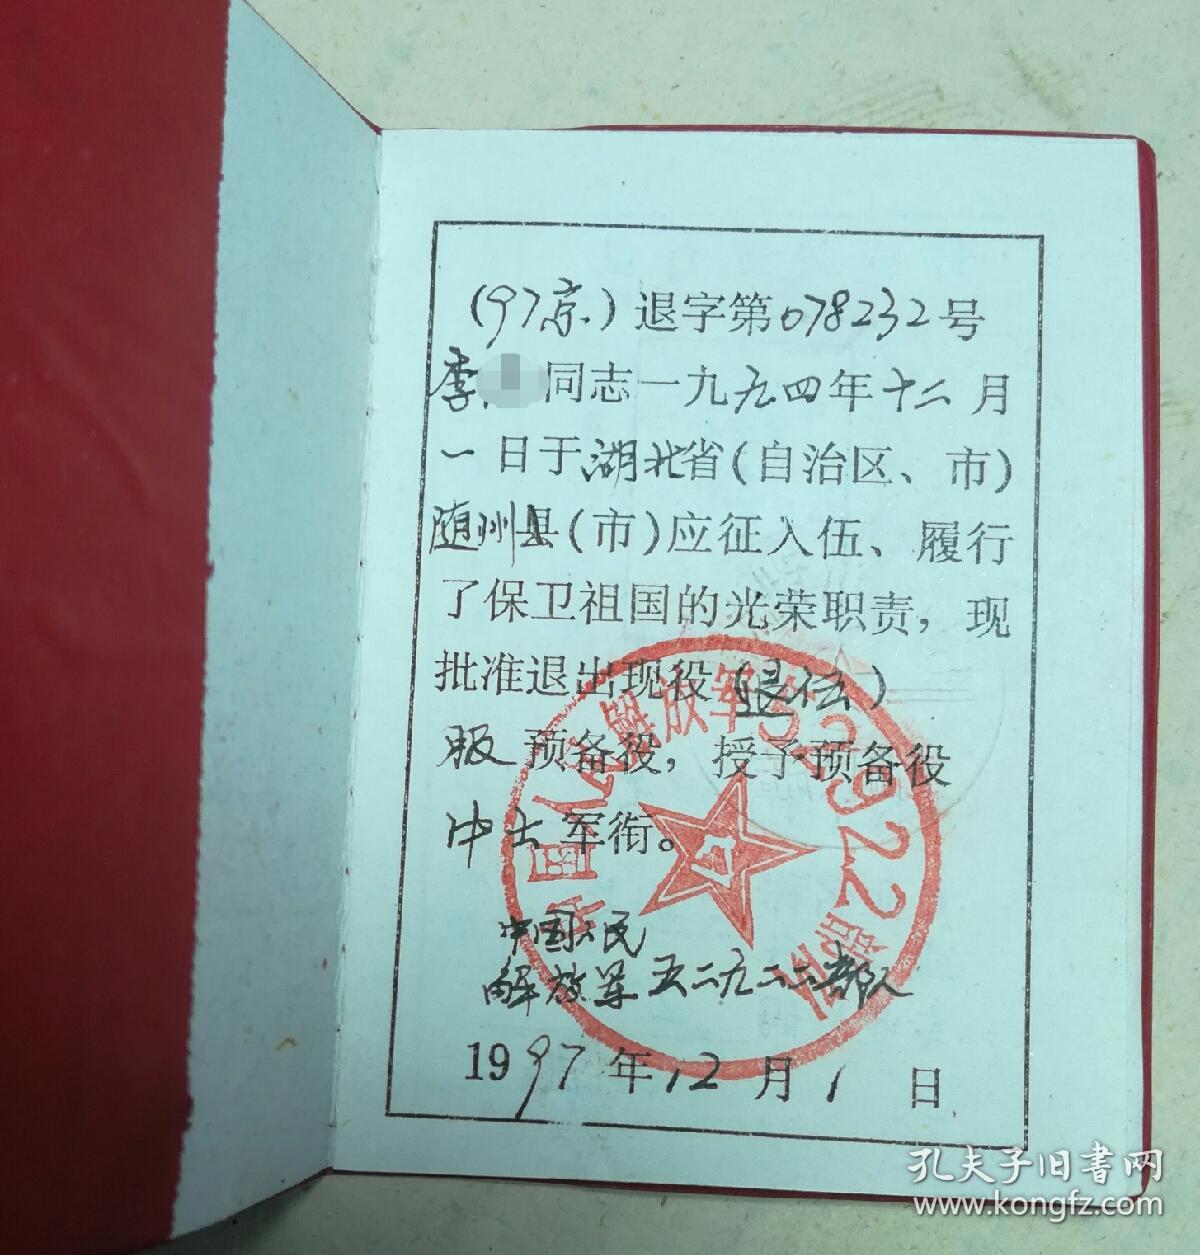 (97京)退字第078232号
李 同志一九九四年十二月
一日于湖北省(自治区、市)
随州县(市)应征入伍、履行
了保卫祖国的光荣职责，现
批准退出现役(退伍)
服预备役，授予预备役
中士军衔。
中国人民
解放军五二九二二部队
1997年12月1日
中国人民解放军52922部队
孔夫子旧书网
www.kongfz.com